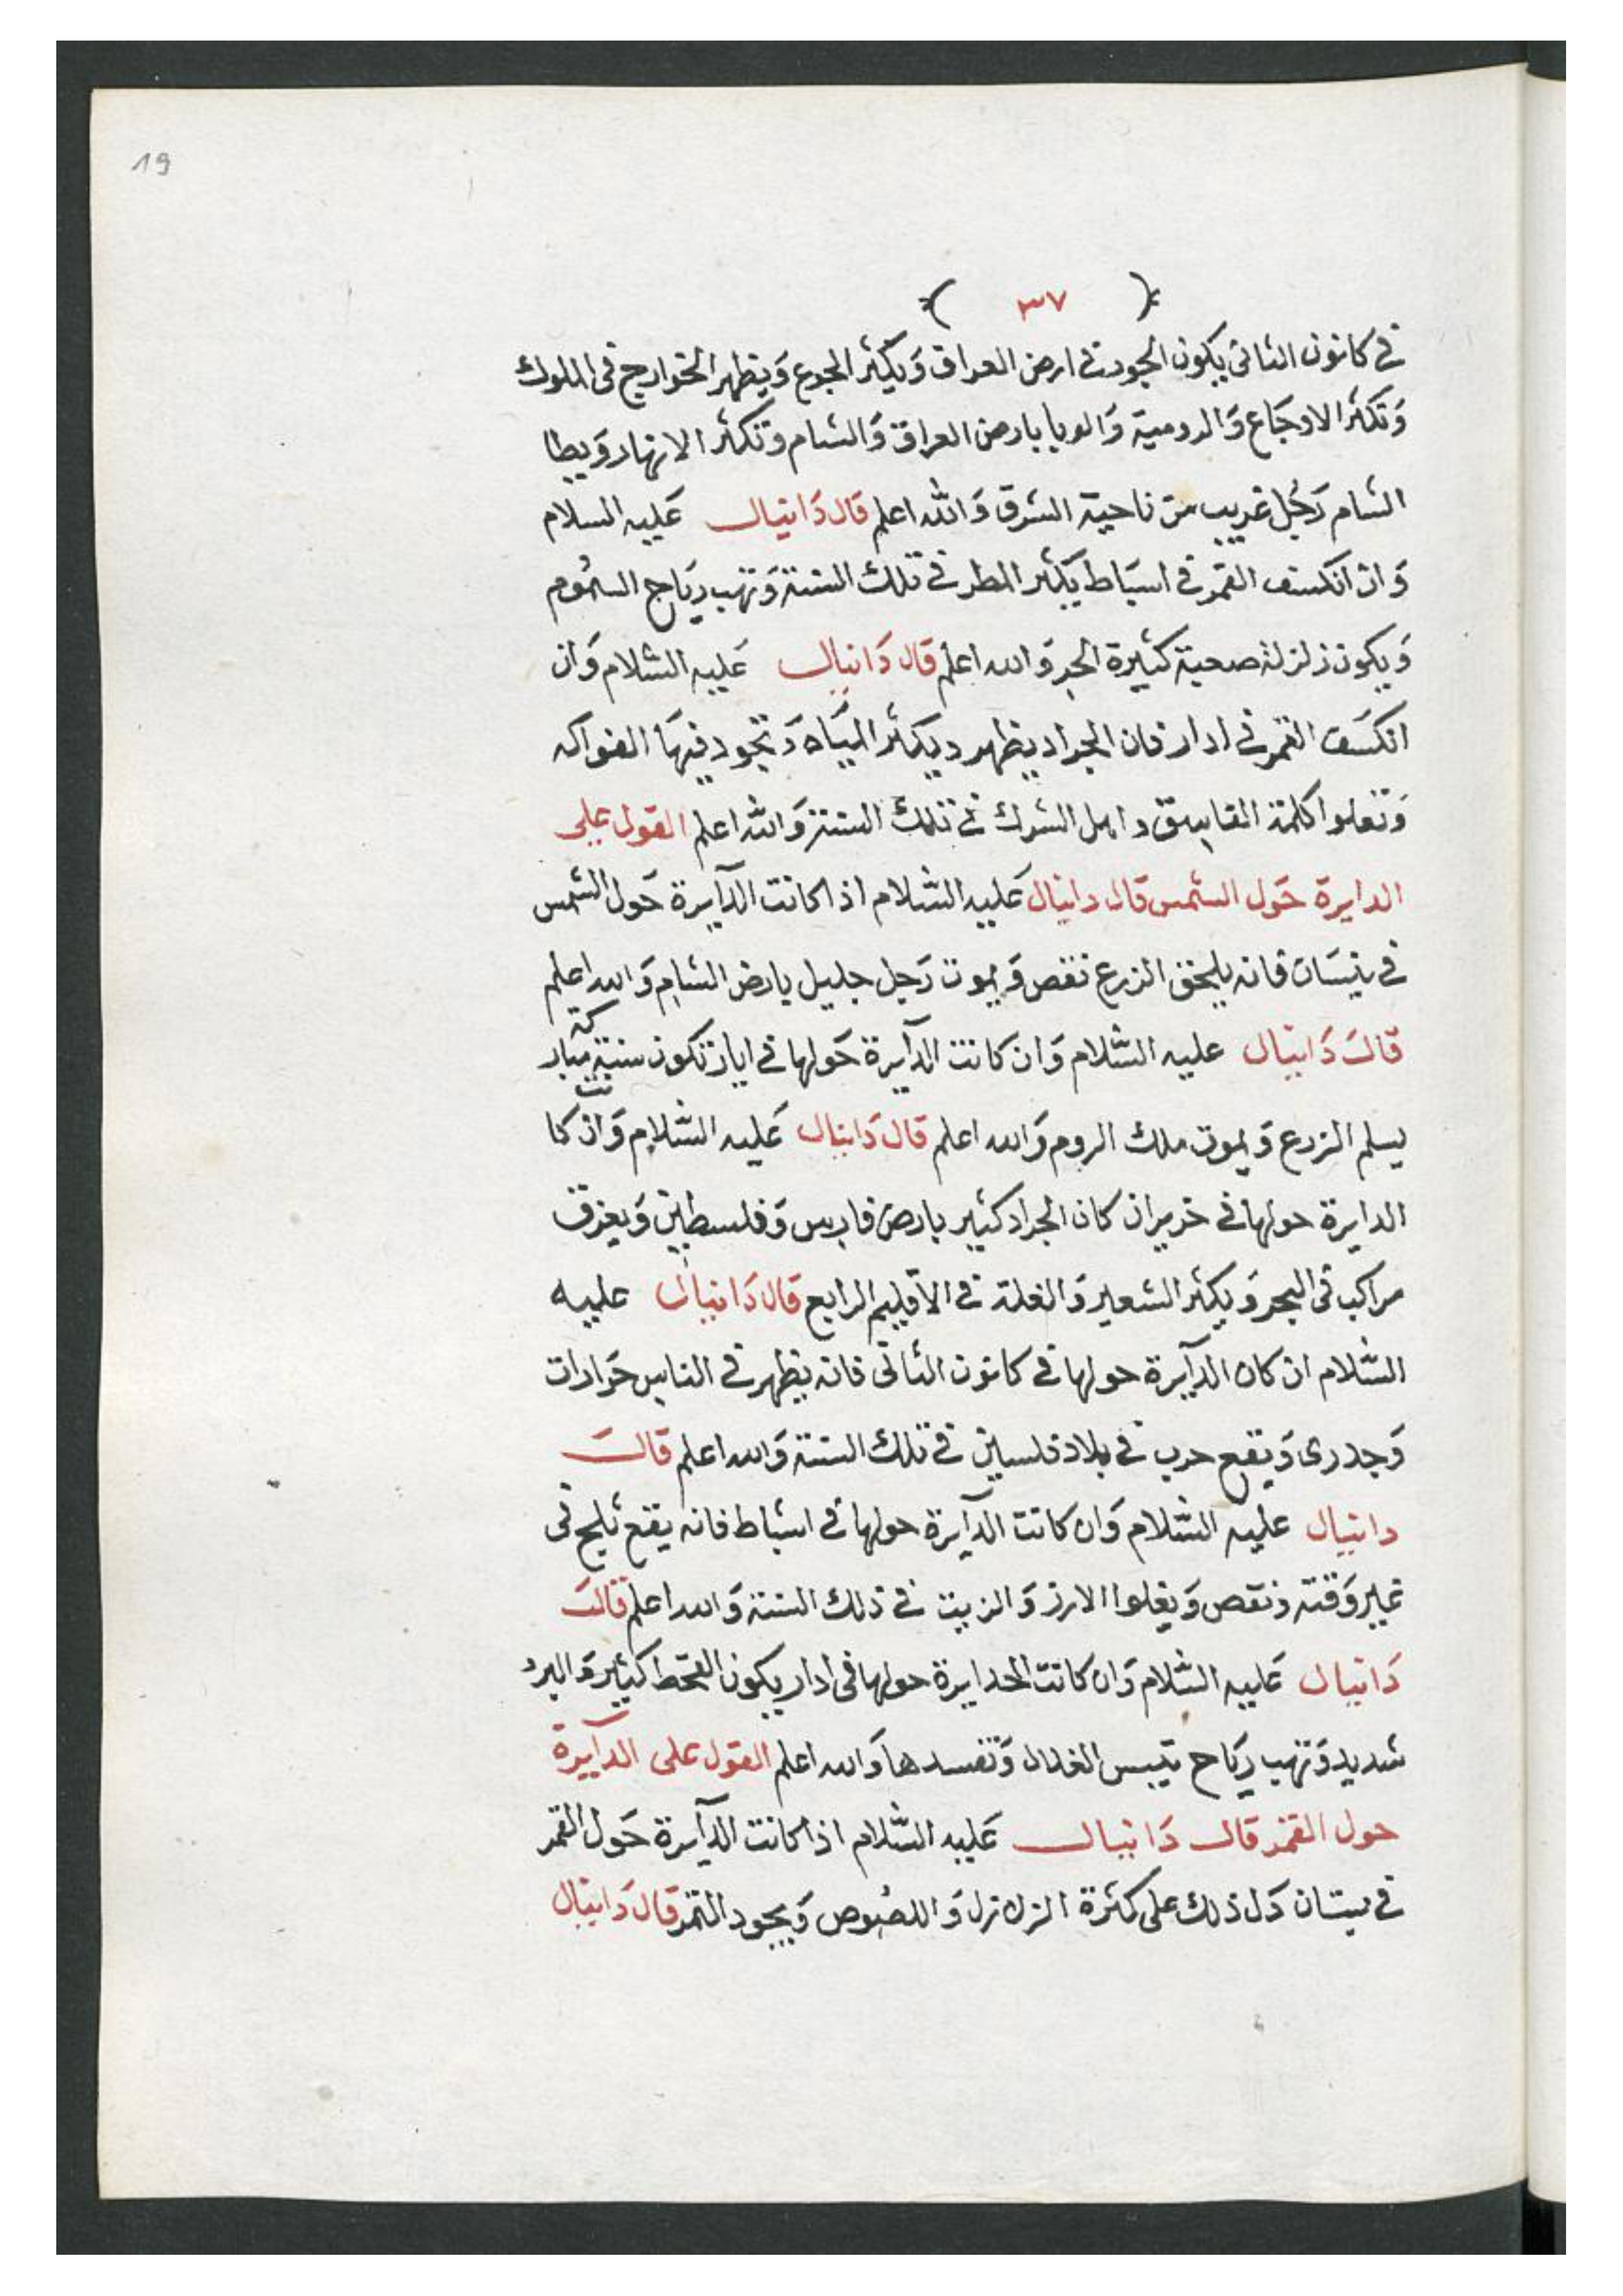 19
٣٧
في كانون الثاني يكون الجود في ارض العراق وَيكثر الجوع وَيظهر الخوارج في الملوك
وَتكثر الاوجَاع وَالدوميّة وَالوبا بارض العراق وَالشام وتكثر الانهار وَيطا
الشام رَجُل غريب من ناحية الشرق وَالله اعلم قال دَانيال عَليه السلام
وَان انكسف القمر في اسبَاط يكثر المطر في تلك السنة وَتهب ريَاح السمُوم
وَيكون زلزلة صحبة كثيرة الجر وَالله اعلم قال دَانيال عَليه السّلام وَان
انكسَف القمر في ادار فان الجراد يظهر ويكثر الميَاه وَتجود فيهَا الفواكه
وَتعلوا كلمة الفاسق واهل الشرك في تلك السنة وَالله اعلم القول على
الدايرة حَول الشمس قال دانيال عَليه السّلام اذا كانت الدآيرة حَول الشمس
في نيسَان فانه يلحق الزرع نقص وَيموت رَجل جليل بارض الشام وَالله اعلم
قالَ دَانيال عليه السّلام وَان كانت الدآيرة حَولها في ايار تكون سنة مباركة
يسلم الزرع وَيموت ملك الروم وَالله اعلم قال دَانيال عَليه السّلام وَان كانت
الدايرة حولها في حزيران كان الجراد كثير بارض فارس وَفلسطين وَيغرق
مراكب في البحر وَيكثر الشعير وَالغلة في الاقليم الرابع قال دَانيال عليه
السّلام ان كان الدآيرة حولها في كانون الثاني فانه يظهر في الناس حَرارات
وَجدرى وَيقع حرب في بلاد فلسين في تلك السنة وَالله اعلم قالَ
دانيال عليه السّلام وَان كانت الدآيرة حولها في اشباط فانه يقع ثلج في
غير وَقته ونقص وَيغلوا الارز وَالزيت في ذلك السنة وَالله اعلم قالَ
دَانيال عَليه السّلام وَان كانت الحدايرة حولها في ادار يكون القحط كثير وَالبرد
شديد وَتهب ريَاح تيبس الغلال وَتفسدها وَالله اعلم القول على الدآيرة
حول القمر قال دَانيال عَليه السّلام اذا كانت الدآيرة حَول القمر
في نيسَان دَل ذلك على كثرة الزلازل وَاللصُوص وَيجود التمر قال دَانيال